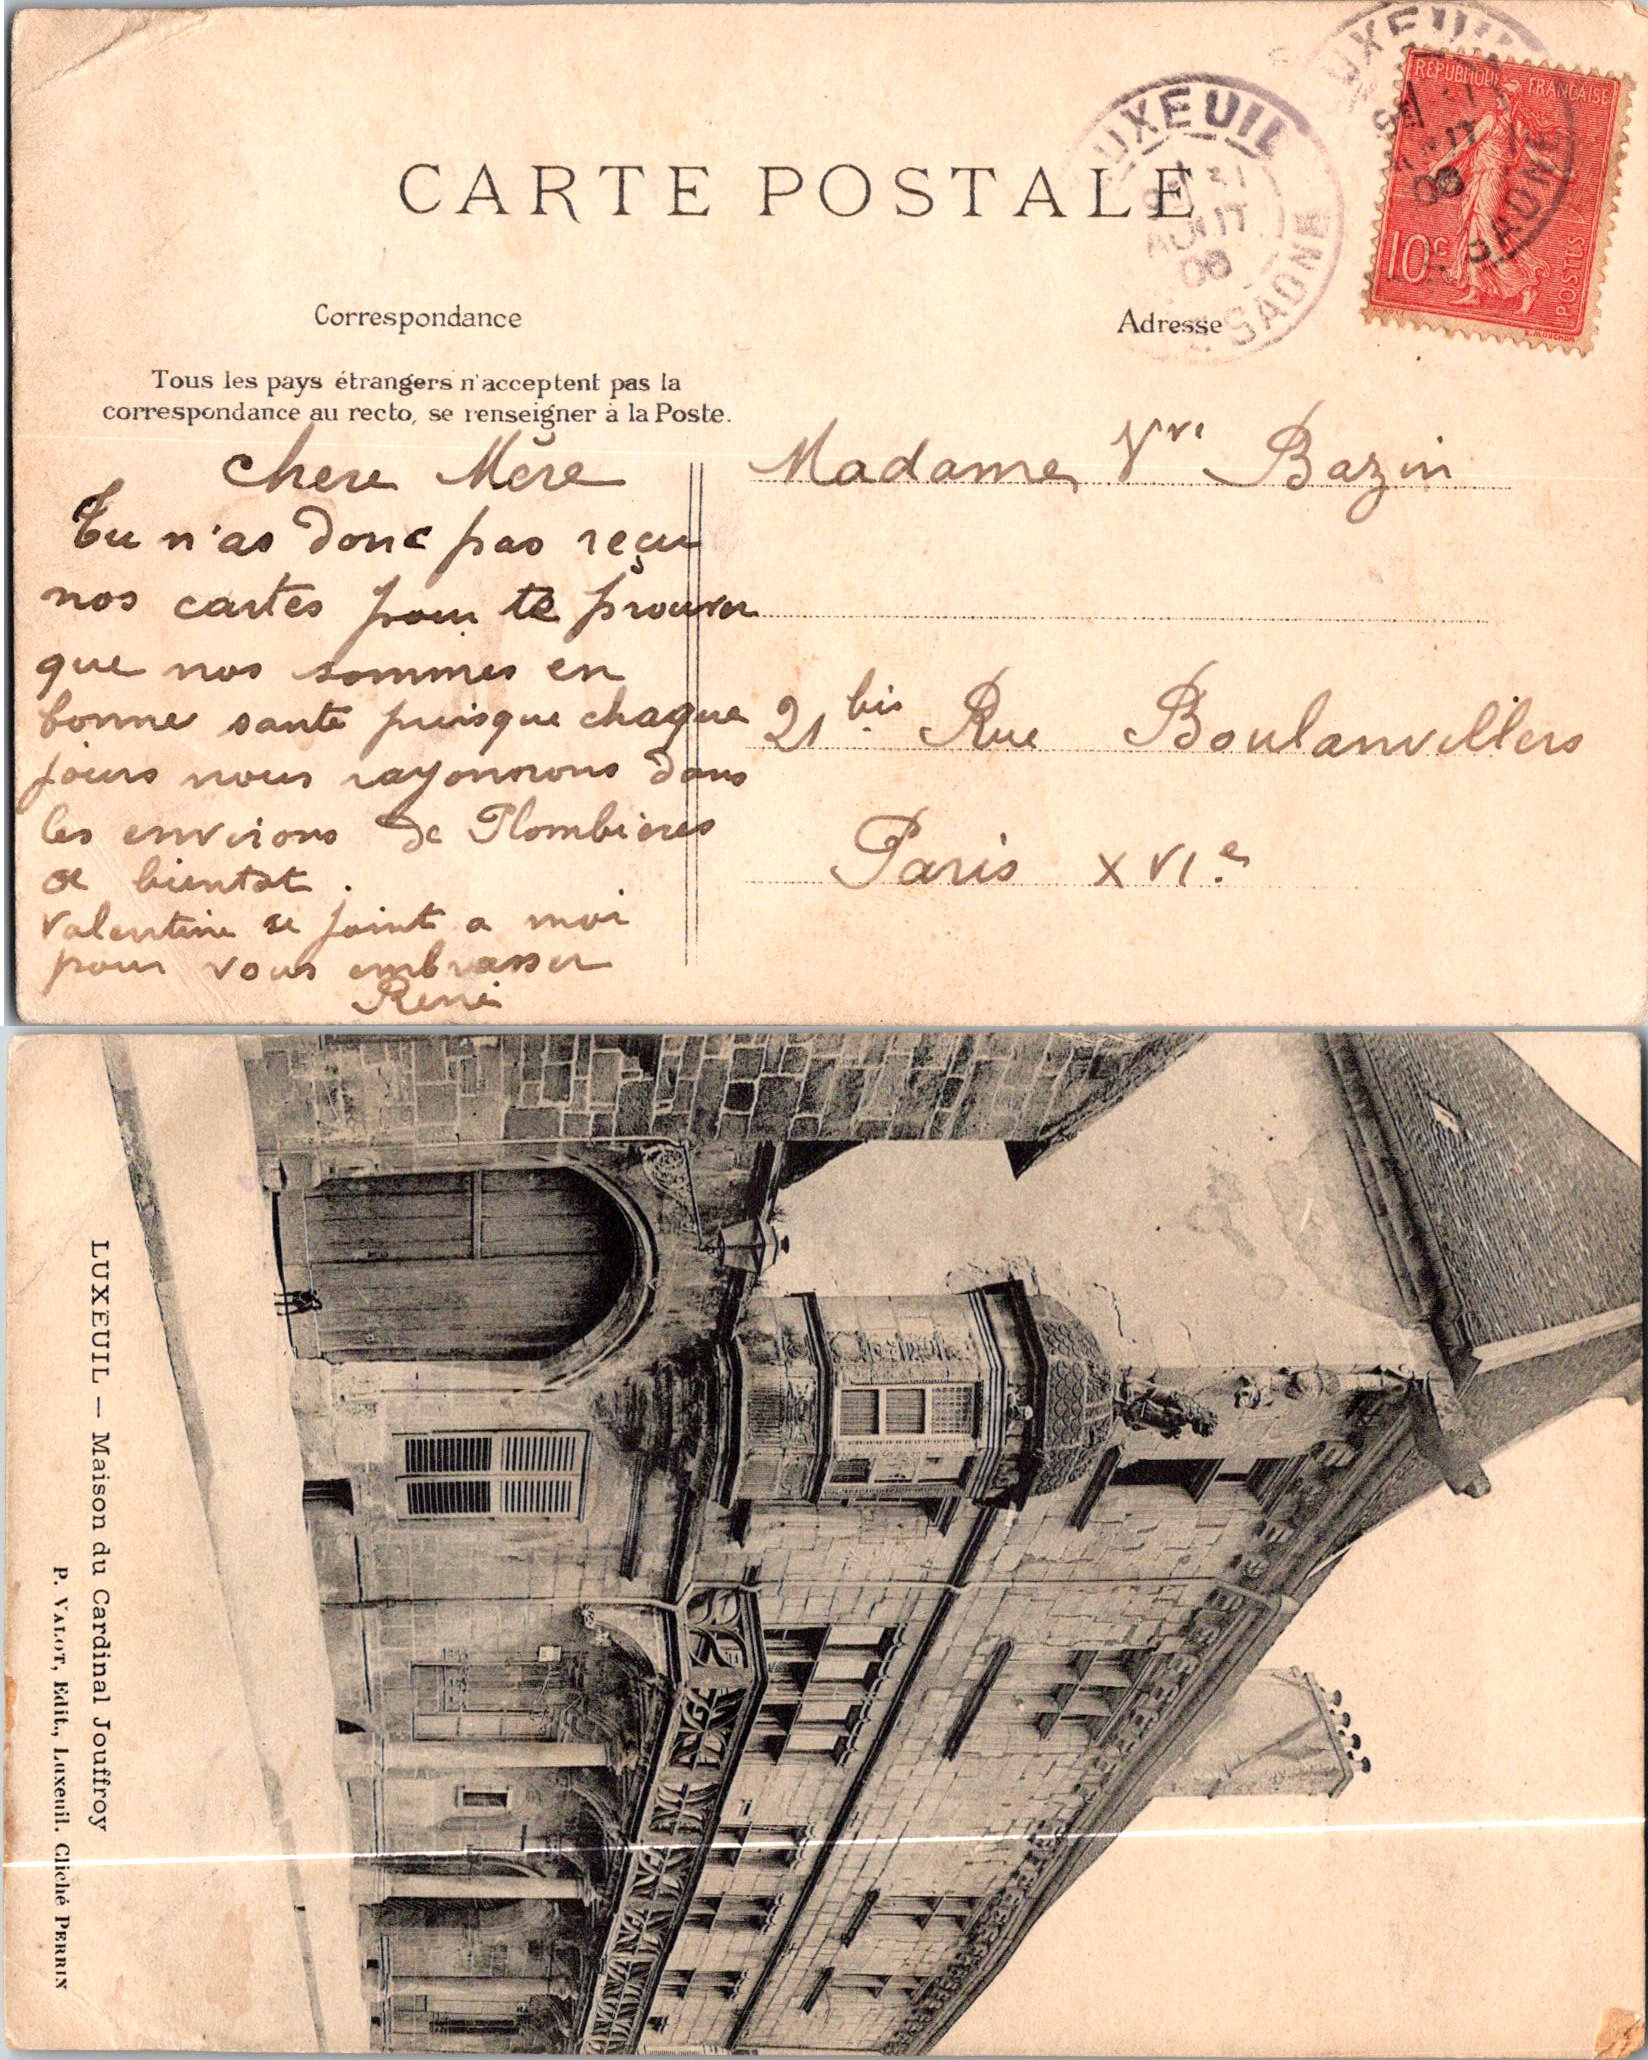 CARTE POSTALE
LUXEUIL
AOUT
06
SAONE
LUXEUIL
AOUT
06
SAONE
REPUBLIQUE FRANÇAISE
10c
POSTES
ROTY
E. MOUCHON
Correspondance
Adresse
Tous les pays étrangers n'acceptent pas la
correspondance au recto, se renseigner à la Poste.
Chere Mère
Tu n'as donc pas reçu
nos cartes pour te prouver
que nos sommes en
bonne santé puisque chaque
jours nous rayonnons dans
les environs de Plombieres
a bientot.
Valentine se joint a moi
pour vous embrasser
René
Madame Vve Bazin
21 bis Rue Boulanvillers
Paris XVIe
LUXEUIL — Maison du Cardinal Jouffroy
P. VALOT, Edit., Luxeuil. Cliché PERRIN